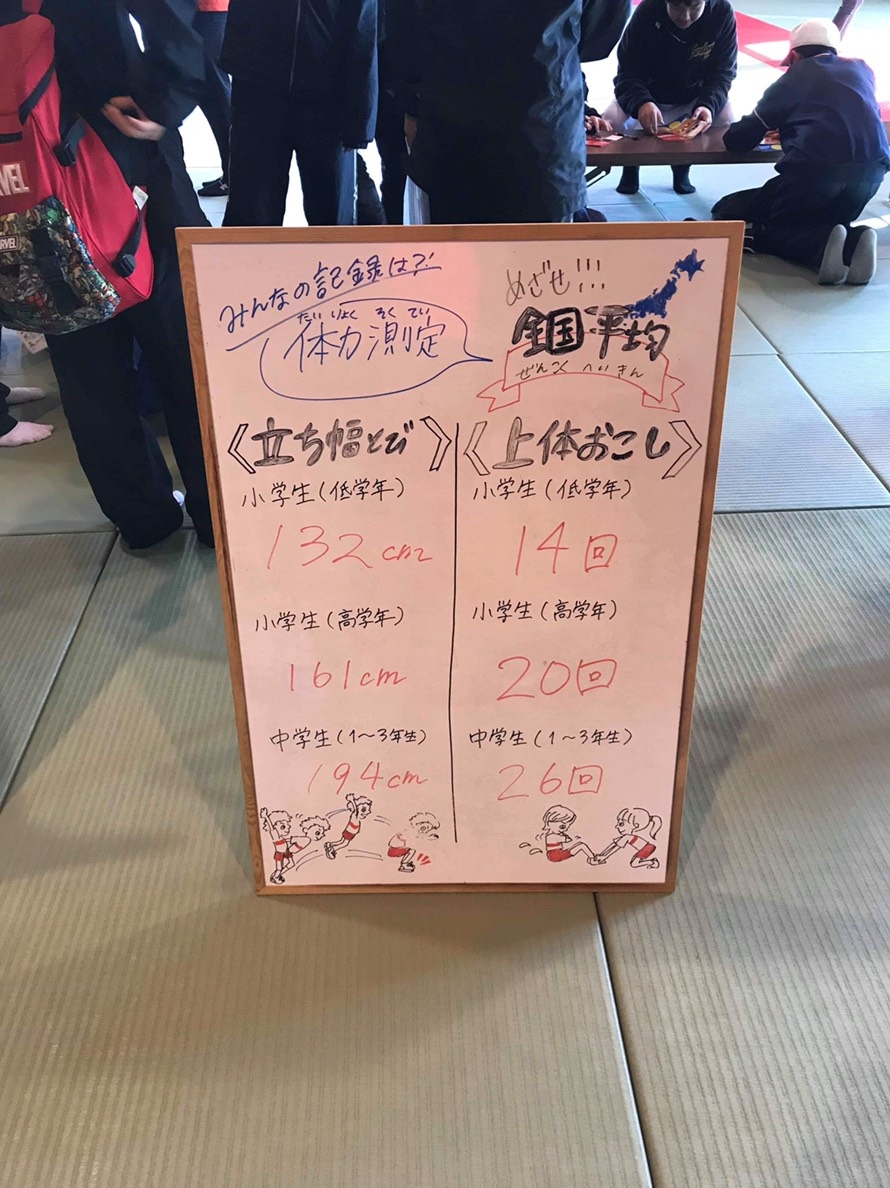 みんなの記録は?!
たいりょく そくてい
体力測定
めざせ!!!
全国平均
ぜんこくへいきん
《立ち幅とび》
小学生(低学年)
132cm
小学生(高学年)
161cm
中学生(1〜3年生)
194cm
《上体おこし》
小学生(低学年)
14回
小学生(高学年)
20回
中学生(1〜3年生)
26回
MARVEL